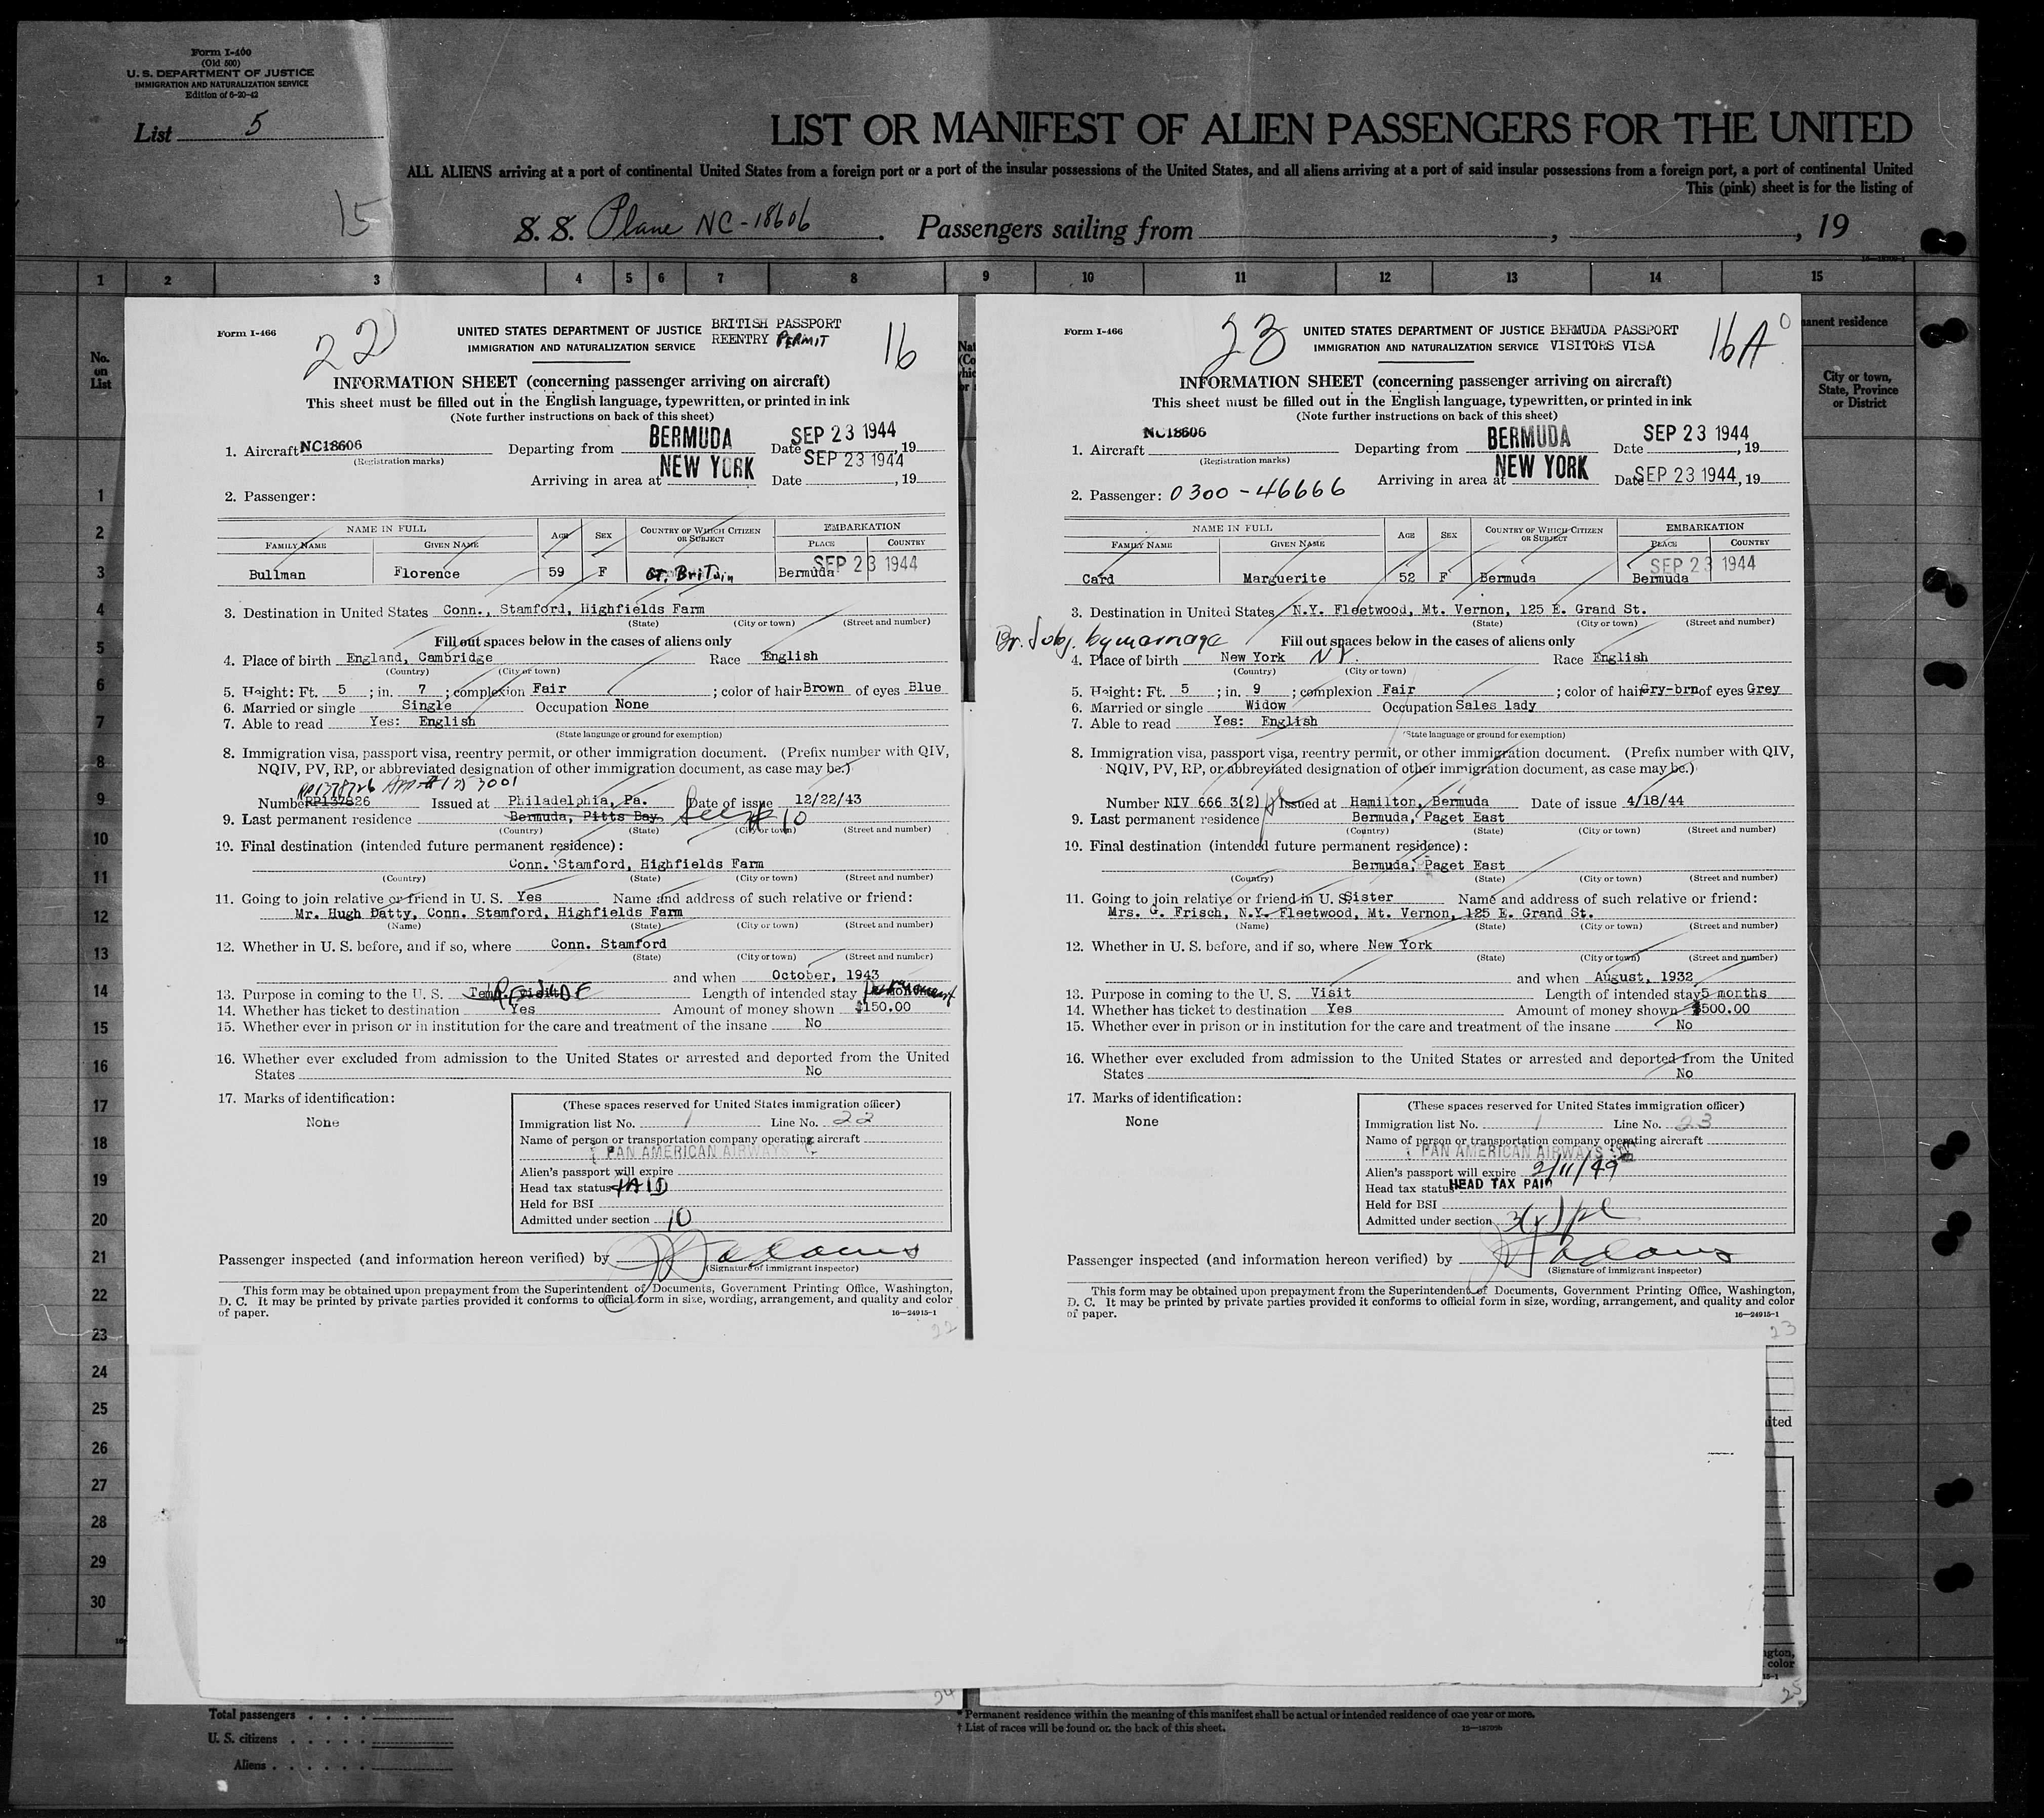 Form I-400
(Old 500)
U. S. DEPARTMENT OF JUSTICE
IMMIGRATION AND NATURALIZATION SERVICE
Edition of 6-20-42
List 5
LIST OR MANIFEST OF ALIEN PASSENGERS FOR THE UNITED
ALL ALIENS arriving at a port of continental United States from a foreign port or a part of the insular possessions of the United States, and all aliens arriving at a port of said insular possessions from a foreign port, a part of continental United
This (pink) sheet is for the listing of
15
S. S. Plane NC-18606. Passengers sailing from , , 19
1 2 3 4 5 6 7 8 9 10 11 12 13 14 15
No. on List
anent residence
City or town, State, Province or District
1
2
3
4
5
6
7
8
9
10
11
12
13
14
15
16
17
18
19
20
21
22
23
24
25
26
27
28
29
30
Form I-466
22
UNITED STATES DEPARTMENT OF JUSTICE BRITISH PASSPORT
IMMIGRATION AND NATURALIZATION SERVICE REENTRY PERMIT
16
INFORMATION SHEET (concerning passenger arriving on aircraft)
This sheet must be filled out in the English language, typewritten, or printed in ink
(Note further instructions on back of this sheet)
1. Aircraft NC18606 Departing from BERMUDA Date SEP 23 1944, 19
(Registration marks)
Arriving in area at NEW YORK Date SEP 23 1944, 19
2. Passenger:
NAME IN FULL AGE SEX COUNTRY OF WHICH CITIZEN OR SUBJECT EMBARKATION
FAMILY NAME GIVEN NAME PLACE COUNTRY
SEP 23 1944
Bullman Florence 59 F GT. BriTain Bermuda
3. Destination in United States Conn., Stamford, Highfields Farm
(State) (City or town) (Street and number)
Fill out spaces below in the cases of aliens only
4. Place of birth England, Cambridge Race English
(Country) (City or town)
5. Height: Ft. 5 ; in. 7 ; complexion Fair ; color of hair Brown of eyes Blue
6. Married or single Single Occupation None
7. Able to read Yes: English
(State language or ground for exemption)
8. Immigration visa, passport visa, reentry permit, or other immigration document. (Prefix number with QIV,
NQIV, PV, RP, or abbreviated designation of other immigration document, as case may be.)
Number RP137826 Issued at Philadelphia, Pa. Date of issue 12/22/43
9. Last permanent residence Bermuda, Pitts Bay See # 10
(Country) (State) (City or town) (Street and number)
10. Final destination (intended future permanent residence):
Conn. Stamford, Highfields Farm
(Country) (State) (City or town) (Street and number)
11. Going to join relative or friend in U. S. Yes Name and address of such relative or friend:
Mr. Hugh Datty, Conn. Stamford, Highfields Farm
(Name) (State) (City or town) (Street and number)
12. Whether in U. S. before, and if so, where Conn. Stamford
(State) (City or town) (Street and number)
and when October, 1943
13. Purpose in coming to the U. S. RESIDE Length of intended stay Permanent
14. Whether has ticket to destination Yes Amount of money shown $150.00
15. Whether ever in prison or in institution for the care and treatment of the insane No
16. Whether ever excluded from admission to the United States or arrested and deported from the United
States No
17. Marks of identification:
None
(These spaces reserved for United States immigration officer)
Immigration list No. 1 Line No. 22
Name of person or transportation company operating aircraft
PAN AMERICAN AIRWAYS
Alien's passport will expire
Head tax status PAID
Held for BSI
Admitted under section 10
Passenger inspected (and information hereon verified) by Adams
(Signature of immigrant inspector)
This form may be obtained upon prepayment from the Superintendent of Documents, Government Printing Office, Washington,
D. C. It may be printed by private parties provided it conforms to official form in size, wording, arrangement, and quality and color
of paper. 16—24915-1
22
Form I-466
23
UNITED STATES DEPARTMENT OF JUSTICE BERMUDA PASSPORT
IMMIGRATION AND NATURALIZATION SERVICE VISITORS VISA
16A
INFORMATION SHEET (concerning passenger arriving on aircraft)
This sheet must be filled out in the English language, typewritten, or printed in ink
(Note further instructions on back of this sheet)
1. Aircraft NC18606 Departing from BERMUDA Date SEP 23 1944, 19
(Registration marks)
Arriving in area at NEW YORK Date SEP 23 1944, 19
2. Passenger: 0300-46666
NAME IN FULL AGE SEX COUNTRY OF WHICH CITIZEN OR SUBJECT EMBARKATION
FAMILY NAME GIVEN NAME PLACE COUNTRY
SEP 23 1944
Card Marguerite 52 F Bermuda Bermuda
3. Destination in United States N.Y. Fleetwood, Mt. Vernon, 125 E. Grand St.
(State) (City or town) (Street and number)
Br. Subj. by marriage
Fill out spaces below in the cases of aliens only
4. Place of birth New York NY. Race English
(Country) (City or town)
5. Height: Ft. 5 ; in. 9 ; complexion Fair ; color of hair Gry-brn of eyes Grey
6. Married or single Widow Occupation Sales lady
7. Able to read Yes: English
(State language or ground for exemption)
8. Immigration visa, passport visa, reentry permit, or other immigration document. (Prefix number with QIV,
NQIV, PV, RP, or abbreviated designation of other immigration document, as case may be.)
Number NIV 666 3(2) Issued at Hamilton, Bermuda Date of issue 4/18/44
9. Last permanent residence Bermuda, Paget East
(Country) (State) (City or town) (Street and number)
10. Final destination (intended future permanent residence):
Bermuda, Paget East
(Country) (State) (City or town) (Street and number)
11. Going to join relative or friend in U. S. Sister Name and address of such relative or friend:
Mrs. G. Frisch, N.Y. Fleetwood, Mt. Vernon, 125 E. Grand St.
(Name) (State) (City or town) (Street and number)
12. Whether in U. S. before, and if so, where New York
(State) (City or town) (Street and number)
and when August, 1932
13. Purpose in coming to the U. S. Visit Length of intended stay 5 months
14. Whether has ticket to destination Yes Amount of money shown $500.00
15. Whether ever in prison or in institution for the care and treatment of the insane No
16. Whether ever excluded from admission to the United States or arrested and deported from the United
States No
17. Marks of identification:
None
(These spaces reserved for United States immigration officer)
Immigration list No. 1 Line No. 23
Name of person or transportation company operating aircraft
PAN AMERICAN AIRWAYS
Alien's passport will expire 2/11/49
Head tax status HEAD TAX PAID
Held for BSI
Admitted under section
Passenger inspected (and information hereon verified) by Adams
(Signature of immigrant inspector)
This form may be obtained upon prepayment from the Superintendent of Documents, Government Printing Office, Washington,
D. C. It may be printed by private parties provided it conforms to official form in size, wording, arrangement, and quality and color
of paper. 16—24915-1
23
24
25
Total passengers
U. S. citizens
Aliens
* Permanent residence within the meaning of this manifest shall be actual or intended residence of one year or more.
† List of races will be found on the back of this sheet.